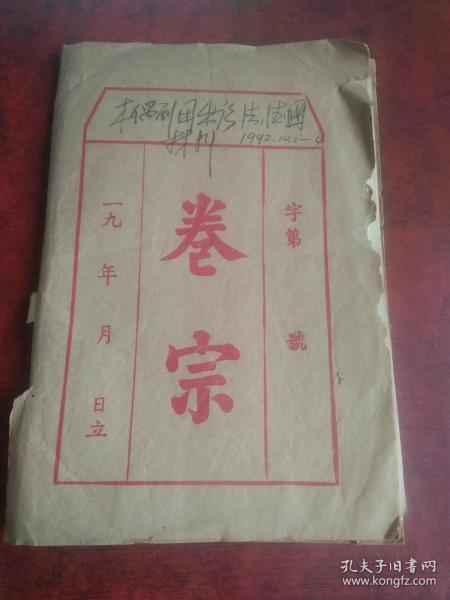 木偶剧团出访法、德国
材料 1992.10.1-4
字第 號
卷宗
一九 年 月 日立
孔夫子旧书网
www.kongfz.com